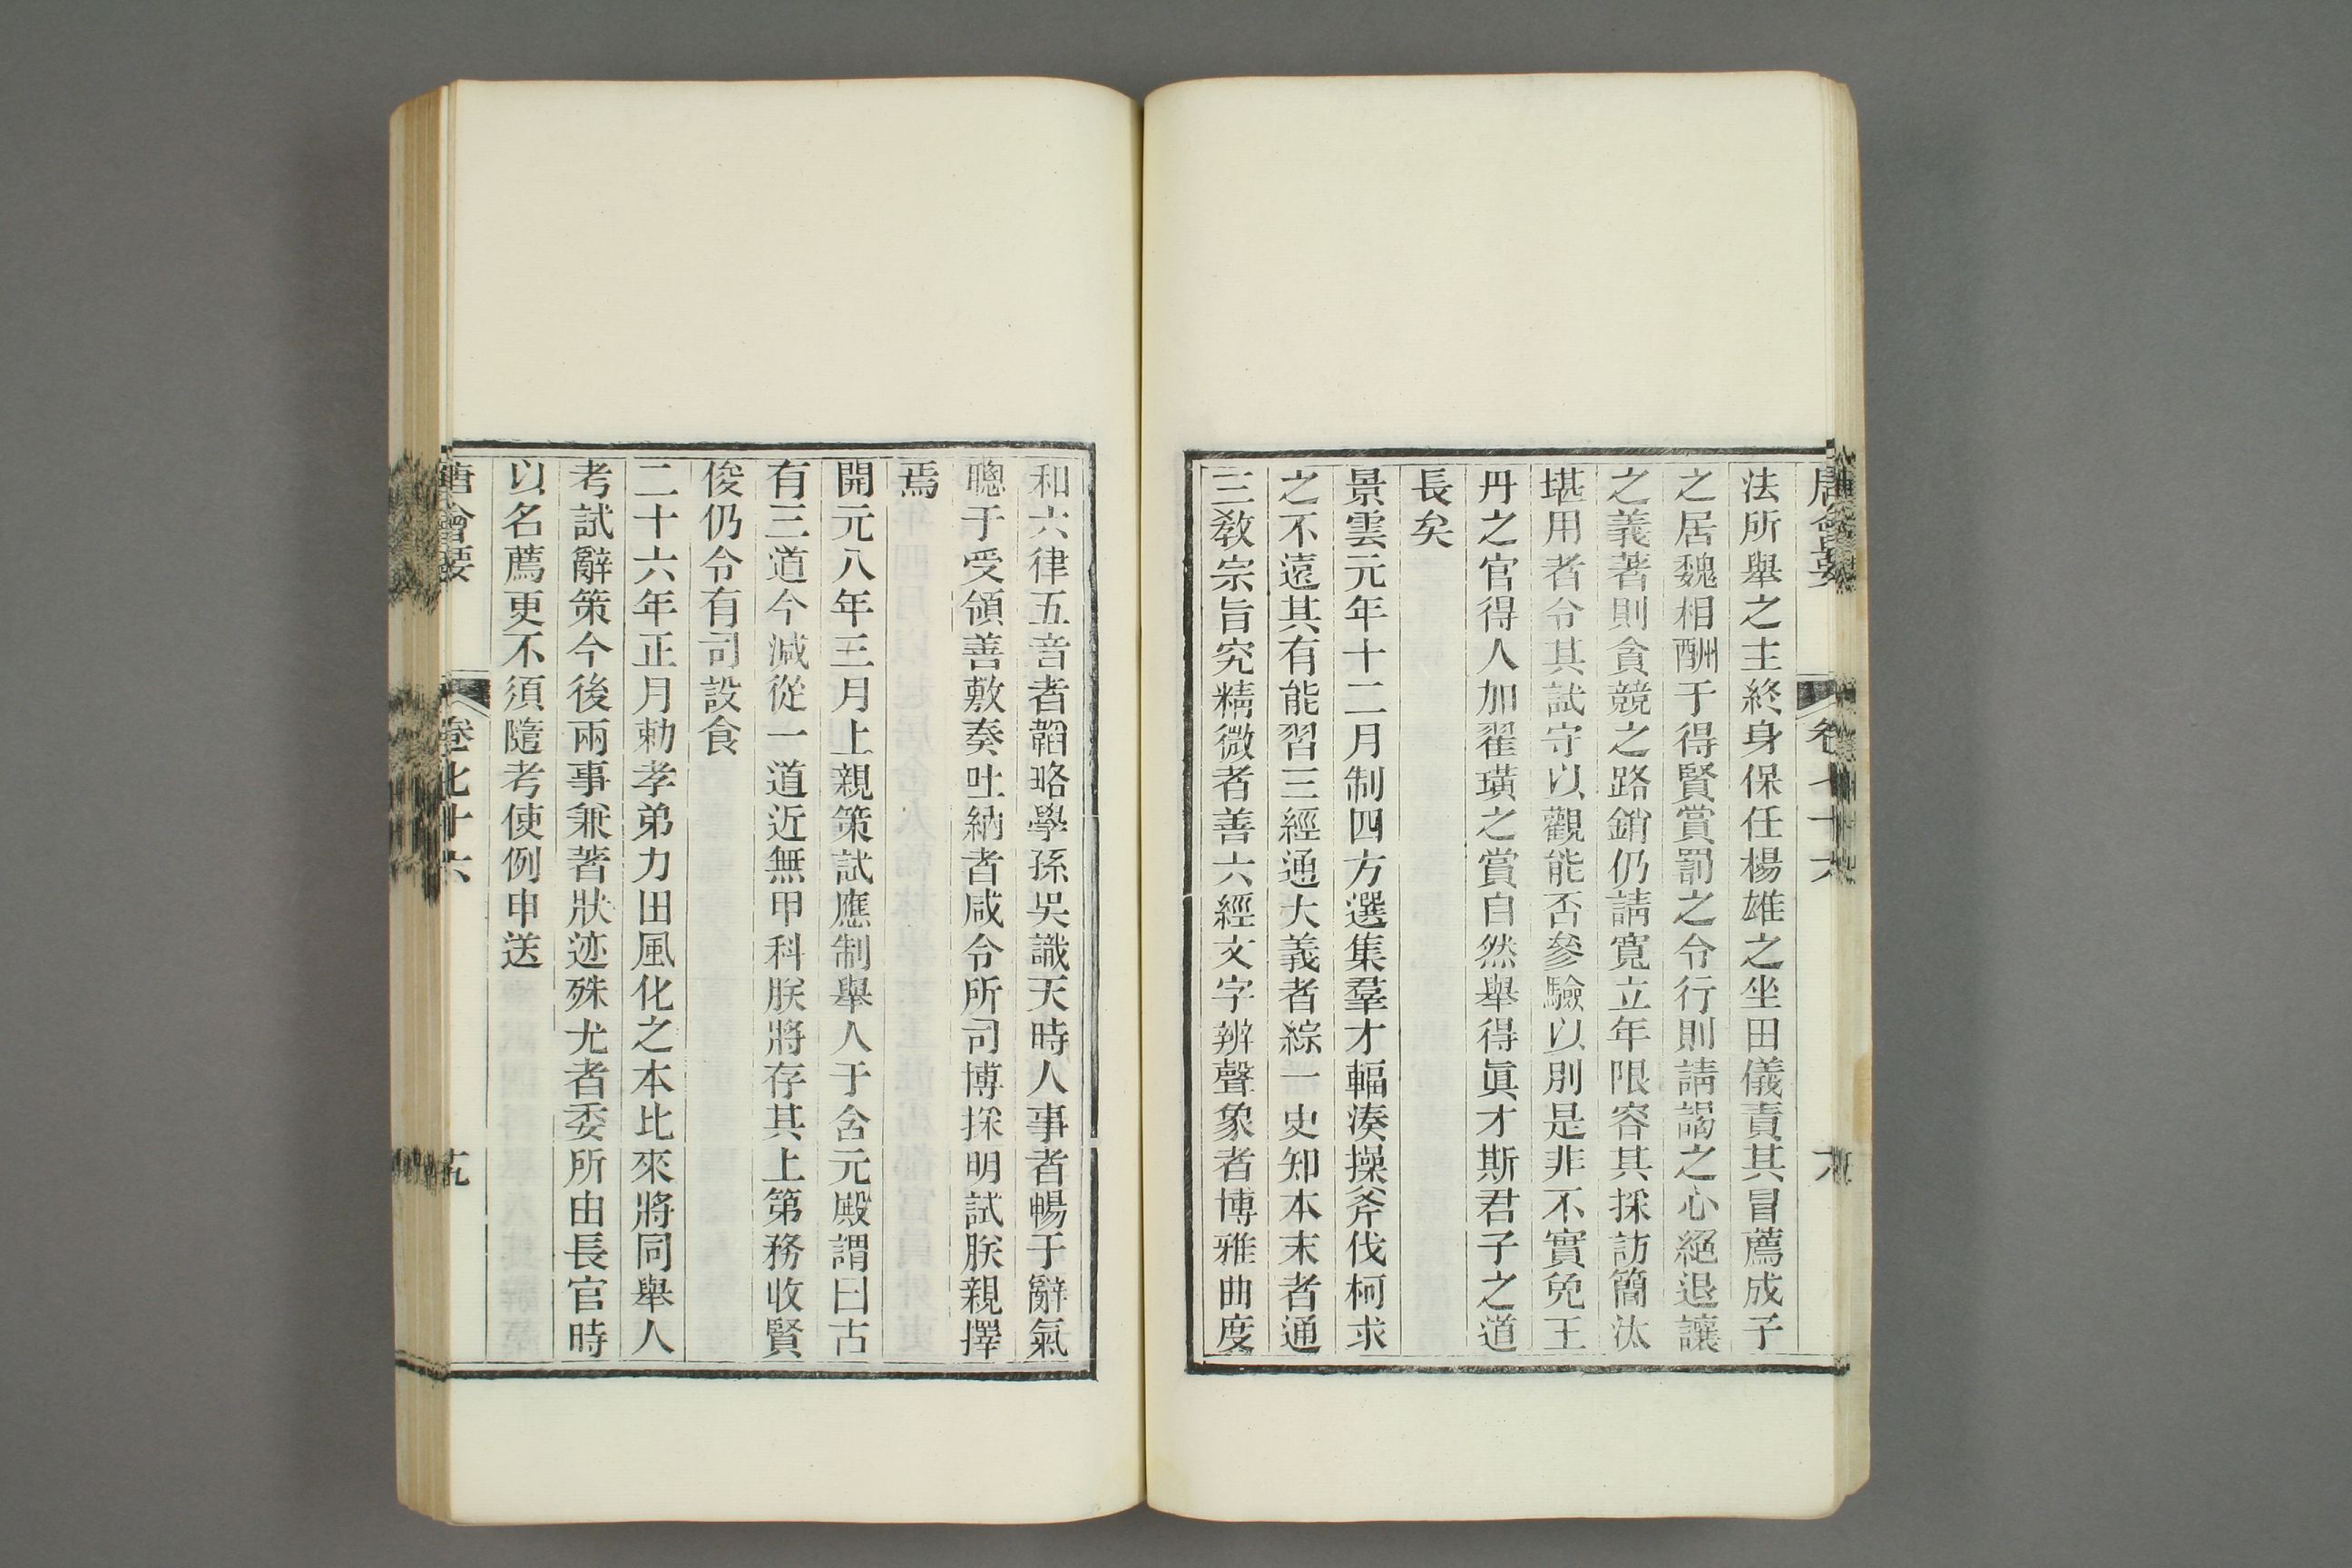 唐會要 卷七十六
法所舉之主終身保任楊雄之坐田儀責其冒薦成子
之居魏相酬于得賢賞罰之令行則請謁之心絕退讓
之義著則貪競之路銷仍請寬立年限容其採訪簡汰
堪用者令其試守以觀能否參驗以別是非不實免王
丹之官得人加翟璜之賞自然舉得眞才斯君子之道
長矣
景雲元年十二月制四方選集羣才輻湊操斧伐柯求
之不遠其有能習三經通大義者綜一史知本末者通
三敎宗旨究精微者善六經文字辨聲象者博雅曲度
和六律五音者韜略學孫吳識天時人事者暢于辭氣
聰于受領善敷奏吐納者咸令所司博採明試朕親擇
焉
開元八年三月上親策試應制舉人于含元殿謂曰古
有三道今減從一道近無甲科朕將存其上第務收賢
俊仍令有司設食
二十六年正月勅孝弟力田風化之本比來將同舉人
考試辭策今後兩事兼著狀迹殊尤者委所由長官時
以名薦更不須隨考使例申送
唐會要 卷七十六